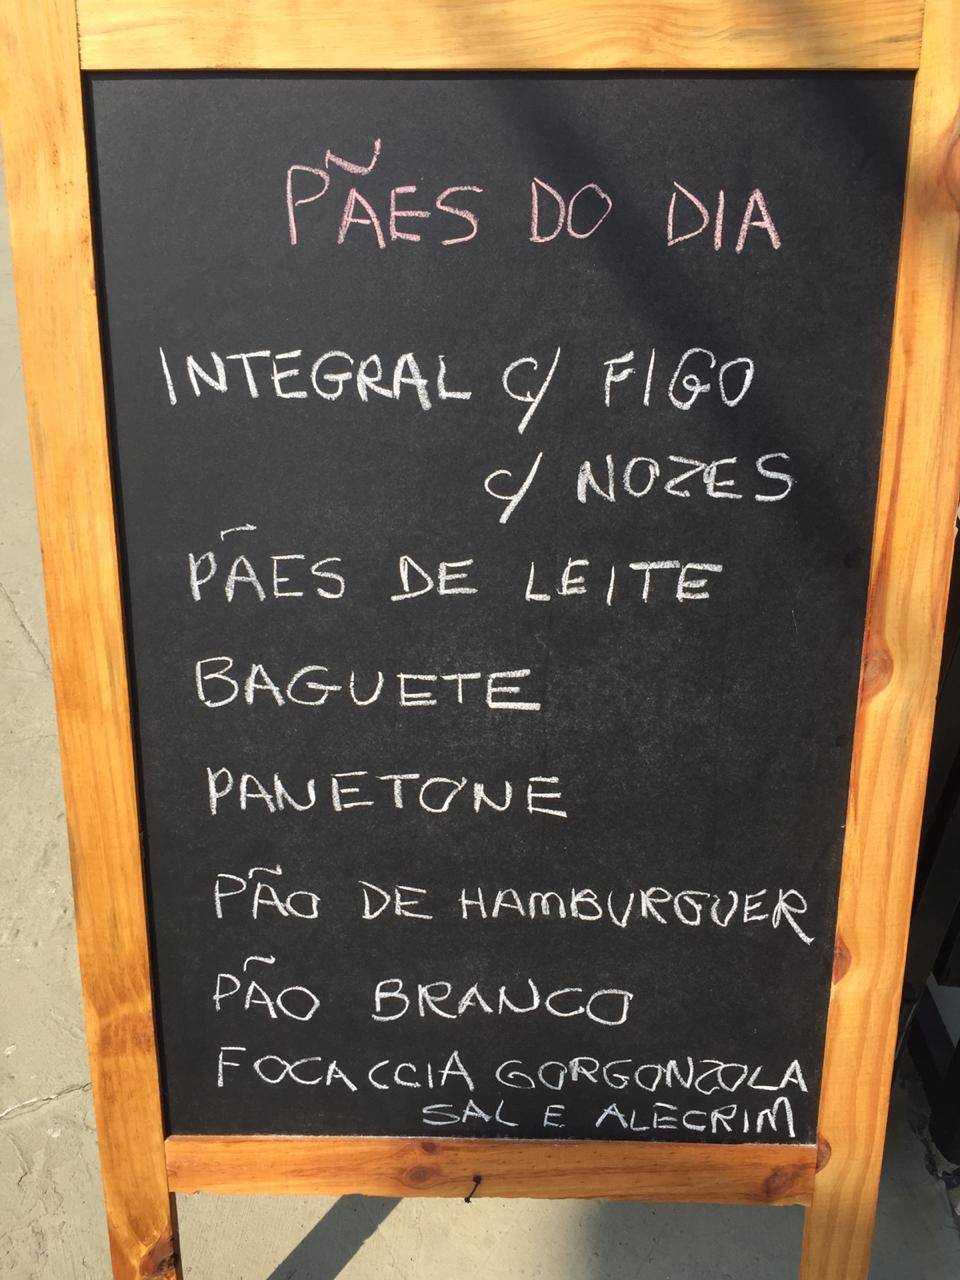 PÃES DO DIA
INTEGRAL C/ FIGO
C/ NOZES
PÃES DE LEITE
BAGUETE
PANETONE
PÃO DE HAMBURGUER
PÃO BRANCO
FOCACCIA GORGONZOLA
SAL E ALECRIM